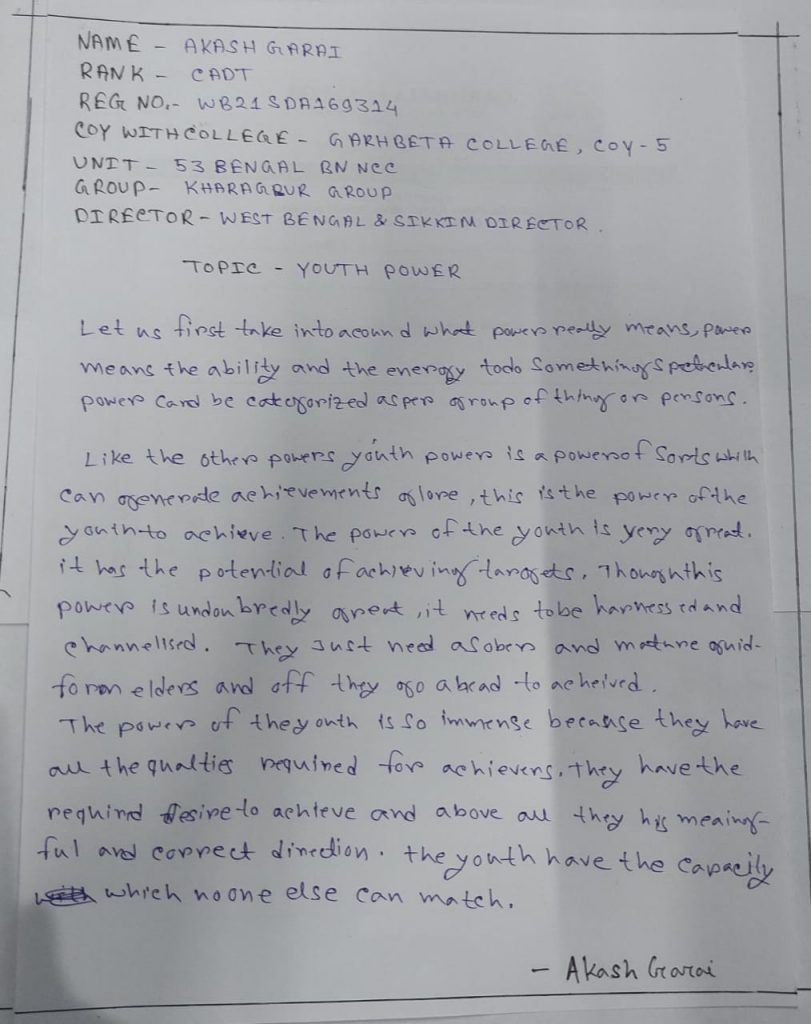 NAME - AKASH GARAI
RANK - CADT
REG NO.- WB21SDA169314
COY WITH COLLEGE - GARHBETA COLLEGE, COY-5
UNIT - 53 BENGAL BN NCC
GROUP- KHARAGPUR GROUP
DIRECTOR - WEST BENGAL & SIKKIM DIRECTOR.
TOPIC - YOUTH POWER
Let us first take into acound what power really means, power
means the ability and the energy todo Something
power Cand be categorized as per group of thing or persons.
Like the other powers youth power is a power of Sorts which
can generate achievements glore, this is the power of the
youth to achieve. The power of the youth is very great.
it has the potential of achieving targets. Though this
power is undoubredly great, it needs to be harnessed and
channelised. They Just need a Sober and mature guid-
elders and off they go ahead to acheived.
The power of the youth is so immense because they have
all the qualties required for achievers. They have the
required desire to achieve and above all they his meaing-
ful and correct direction. the youth have the capacity
which no one else can match.
- Akash Garai